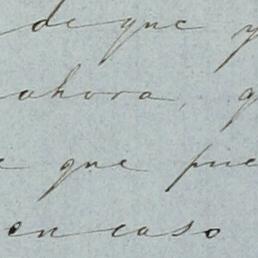 de que y
ahora, q
e que pue
en caso